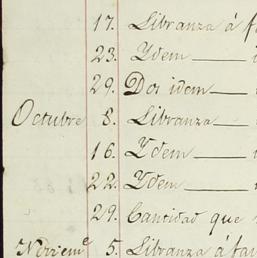 17. Libranza á fa
23. Ydem
29. Dos idem
Octubre 8. Libranza
16. Ydem
22. Ydem
29. Cantidad que
5. Libranza á fav